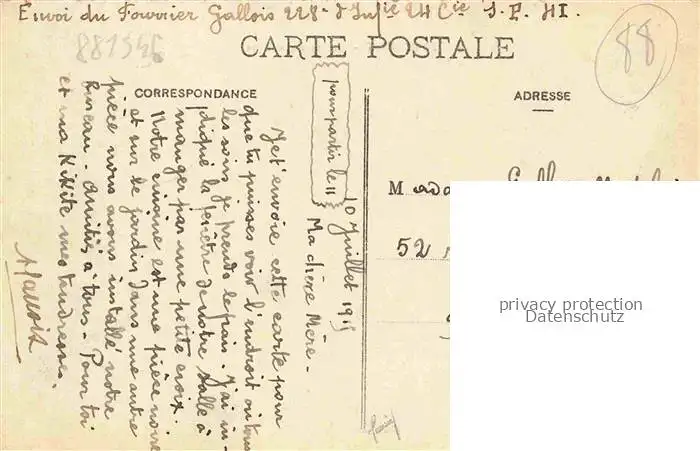 Envoi du Fourrier Gallois 228e d'Infie 24 Cie S.P. 41.
881546
88
CARTE POSTALE
CORRESPONDANCE
ADRESSE
pour partir le 11
10 Juillet 1915
Ma chère Mère.
Je t'envoie cette carte pour
que tu puisses voir l'endroit où tous
les soirs je prends le frais. J'ai in-
diqué la fenêtre de notre salle à
manger par une petite croix.
Notre cuisine est une pièce noire
et sur le jardin dans une autre
pièce nous avons installé notre
bureau. Amitiés à tous. Pour toi
et ma Kikite mes tendresses.
A Gallois
Mada
52
privacy protection
Datenschutz